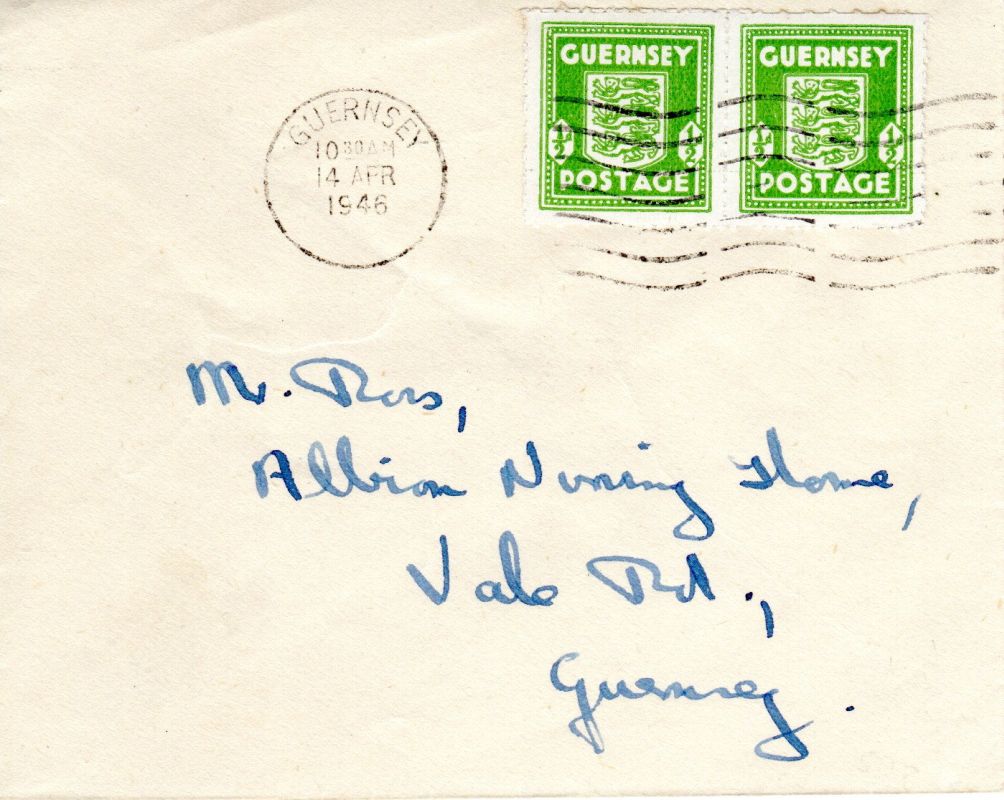 GUERNSEY
10 30 AM
14 APR
1946
GUERNSEY
½ ½
POSTAGE
GUERNSEY
½ ½
POSTAGE
Mr. Ross,
Albion Nursing Home,
Vale Rd.,
Guernsey.